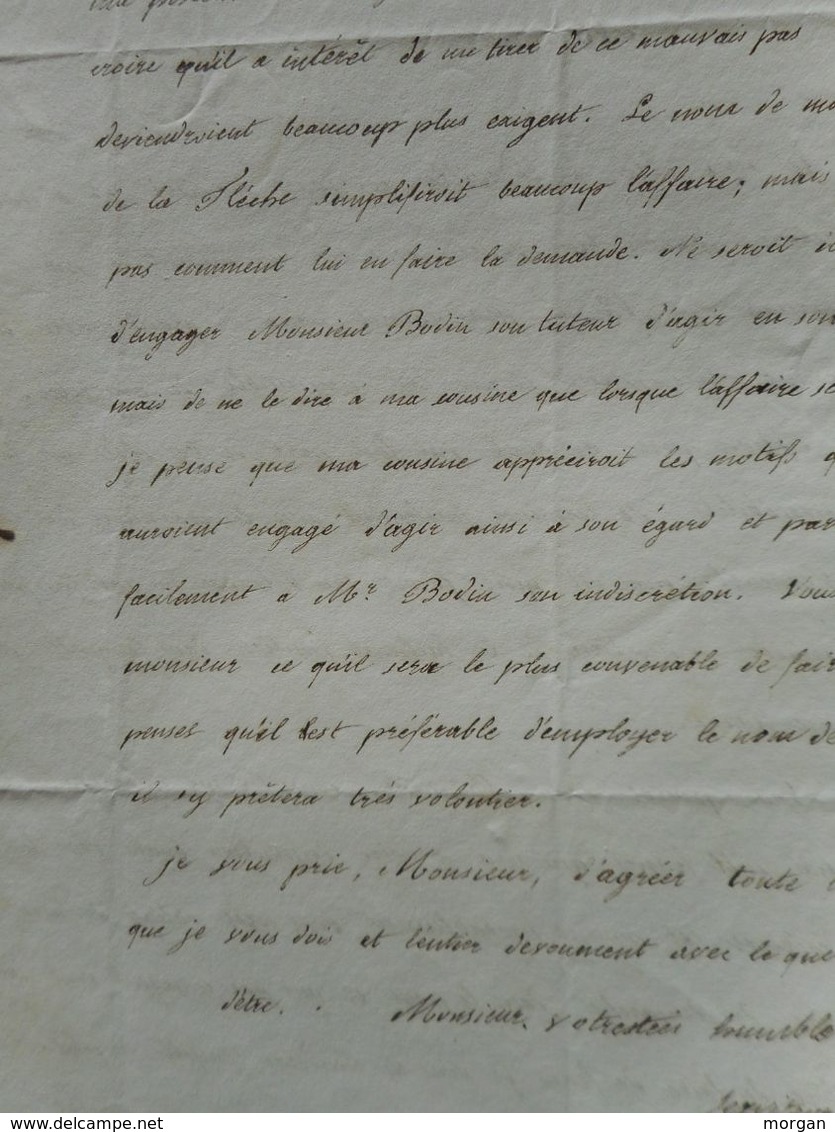 croire qu'il a intérêt de me tirer de ce mauvais pas
deviendroient beaucoup plus exigent. Le nom de
de la Fléche simplifiroit beaucoup l'affaire; mais
pas comment lui en faire la demande. Ne seroit
d'engager Monsieur Bodin son tuteur d'agir en son
mais de ne le dire à ma cousine que lorsque l'affaire
je pense que ma cousine appréciroit les motifs
auroient engagé d'agir ainsi à son égard et par
facilement a Mr Bodin son indiscrétion. Vous
monsieur ce qu'il sera le plus convenable de fair
penses qu'il est préférable d'employer le nom de
il sy prêtera trés volontier.
je vous prie, Monsieur, d'agréer toute
que je vous dois et l'entier devoument avec le que
d'être. Monsieur. votre humble
delcampe.net
morgan